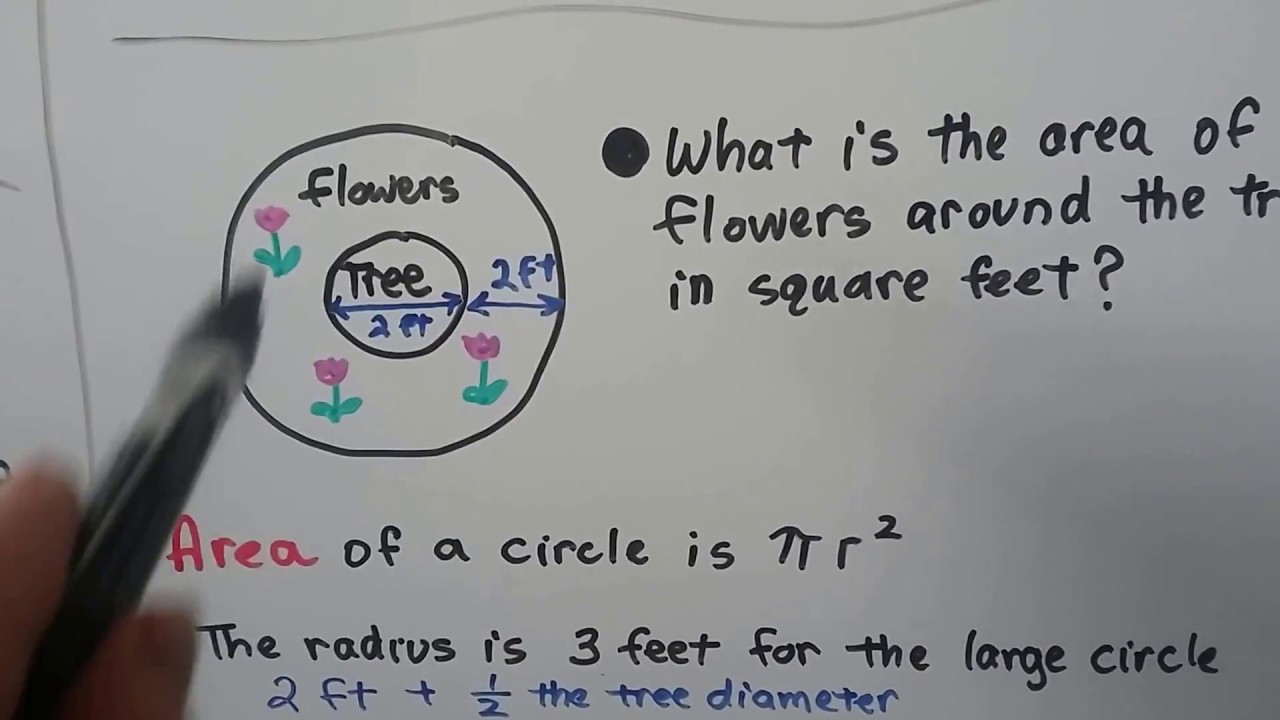 flowers
Tree
2 ft
2 ft
● What is the area of
flowers around the tr
in square feet?
Area of a circle is πr²
The radius is 3 feet for the large circle
2 ft + ½ the tree diameter